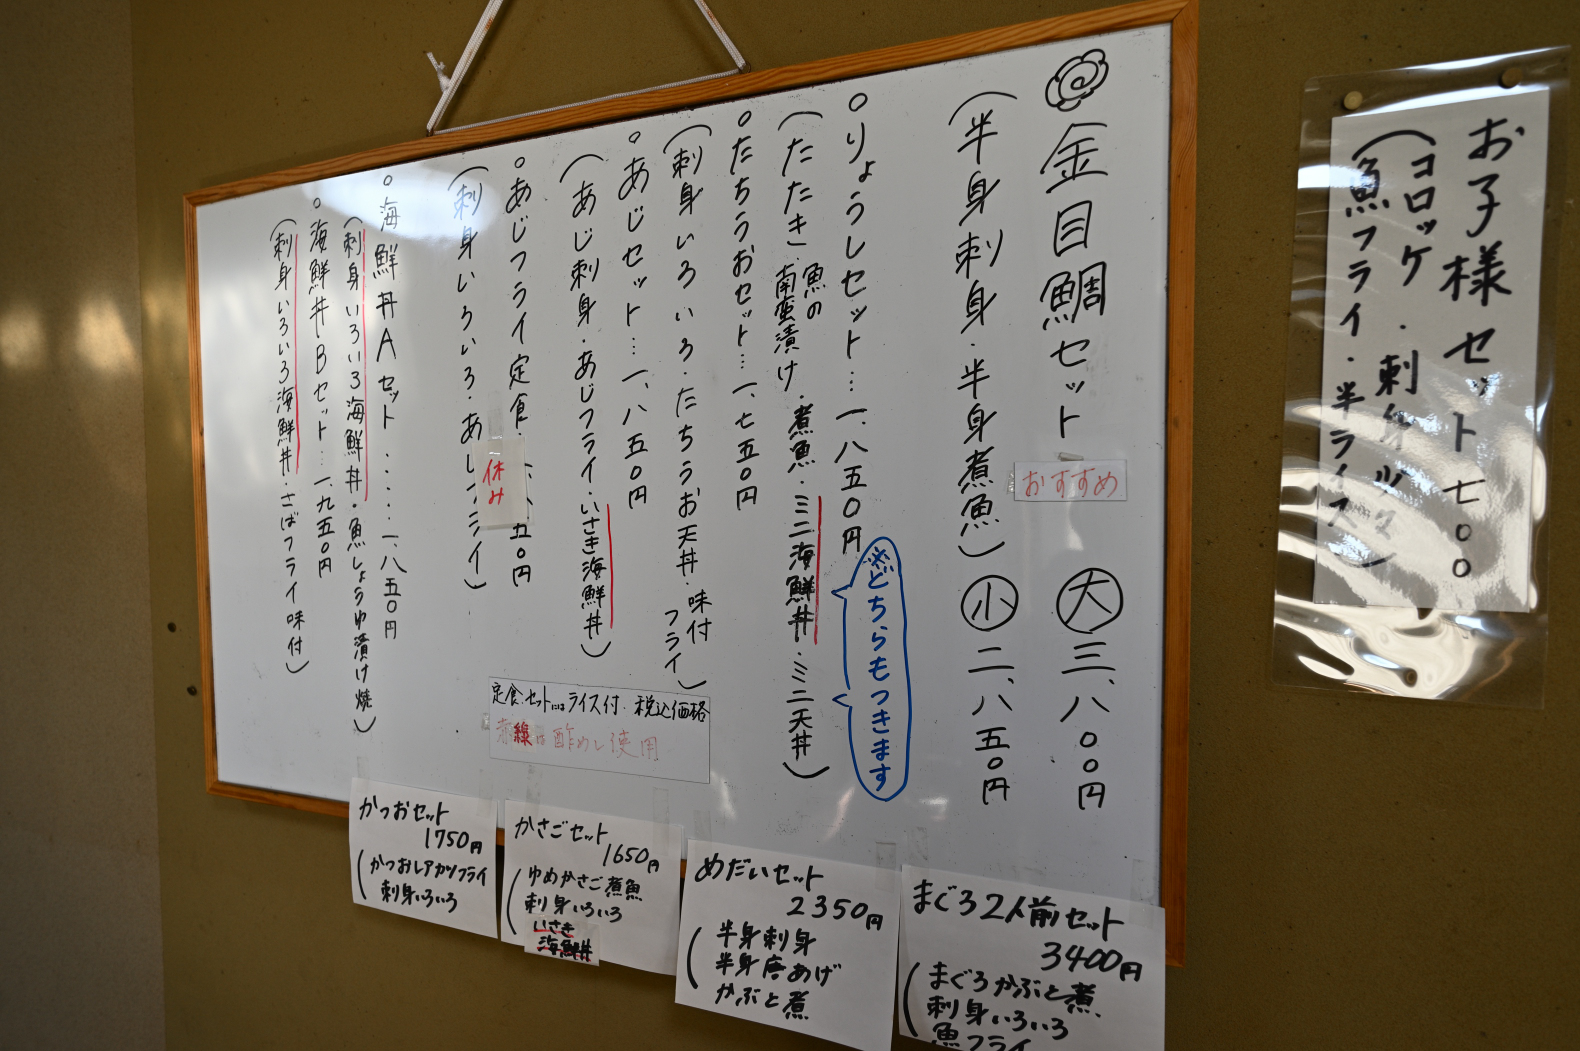 金目鯛セット 大 三、八〇〇円
おすすめ
(半身刺身・半身煮魚) 小 二、八五〇円
○りょうしセット…一、八五〇円
(たたき・魚の南蛮漬け・煮魚・ミニ海鮮丼・ミニ天丼)
※どちらもつきます
○たちうおセット…一、七五〇円
(刺身いろいろ・たちうお天丼・味付フライ)
○あじセット…一、八五〇円
(あじ刺身・あじフライ・いさき海鮮丼)
○あじフライ定食 五〇円
休み
(刺身いろいろ・あじフライ)
○海鮮丼Aセット……一、八五〇円
(刺身いろいろ海鮮丼・魚しょうゆ漬け焼)
○海鮮丼・Bセット…一、九五〇円
(刺身いろいろ海鮮丼・さばフライ味付)
定食、セットにはライス付・税込価格
赤線は酢めし使用
お子様セット七〇〇
(コロッケ・刺身
魚フライ・半ライス)
かつおセット
1750円
(かつおレアカツフライ
刺身いろいろ
かさごセット
1650円
(ゆめかさご煮魚
刺身いろいろ
いさき
海鮮丼
めだいセット
2350円
(半身刺身
半身唐あげ
かぶと煮
まぐろ2人前セット
3400円
(まぐろかぶと煮
刺身いろいろ
魚フライ